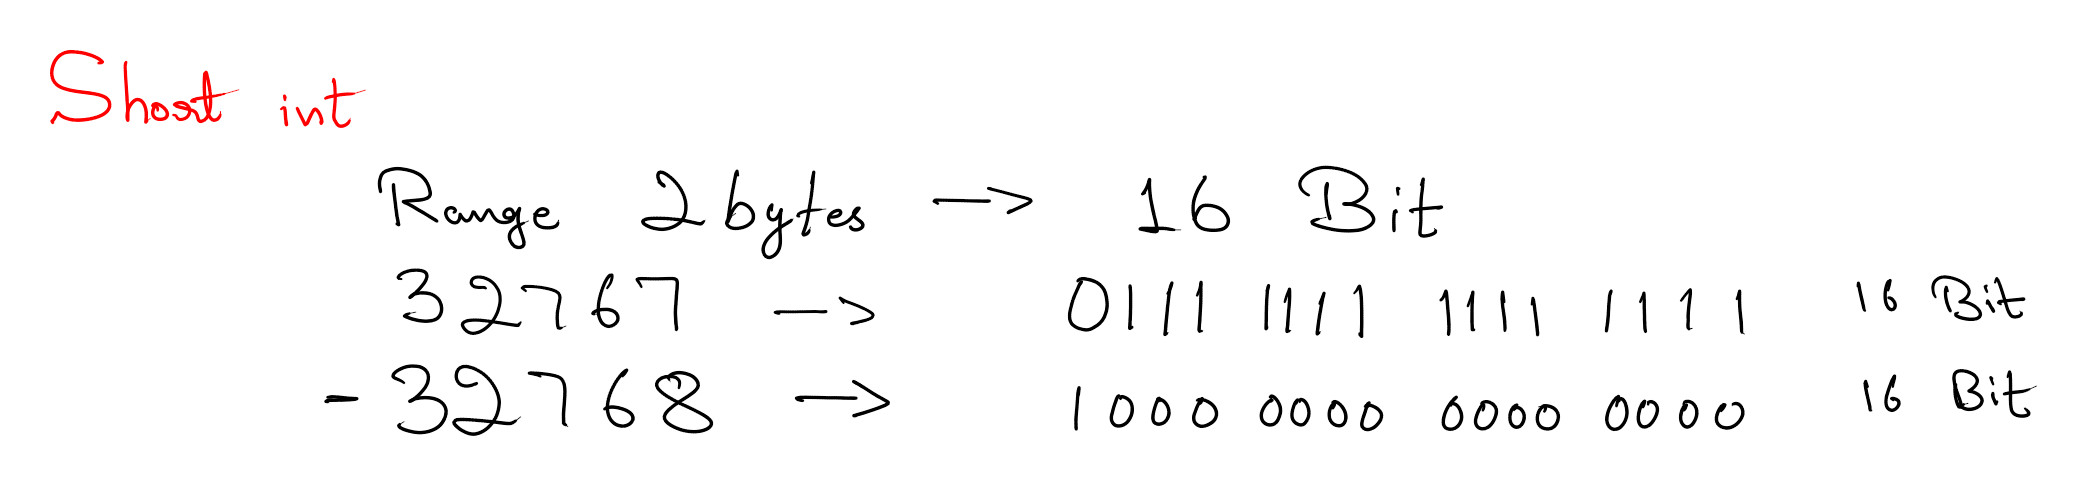 Short int
Range 2 bytes → 16 Bit
32767 → 0111 1111 1111 1111 16 Bit
- 32768 → 1000 0000 0000 0000 16 Bit